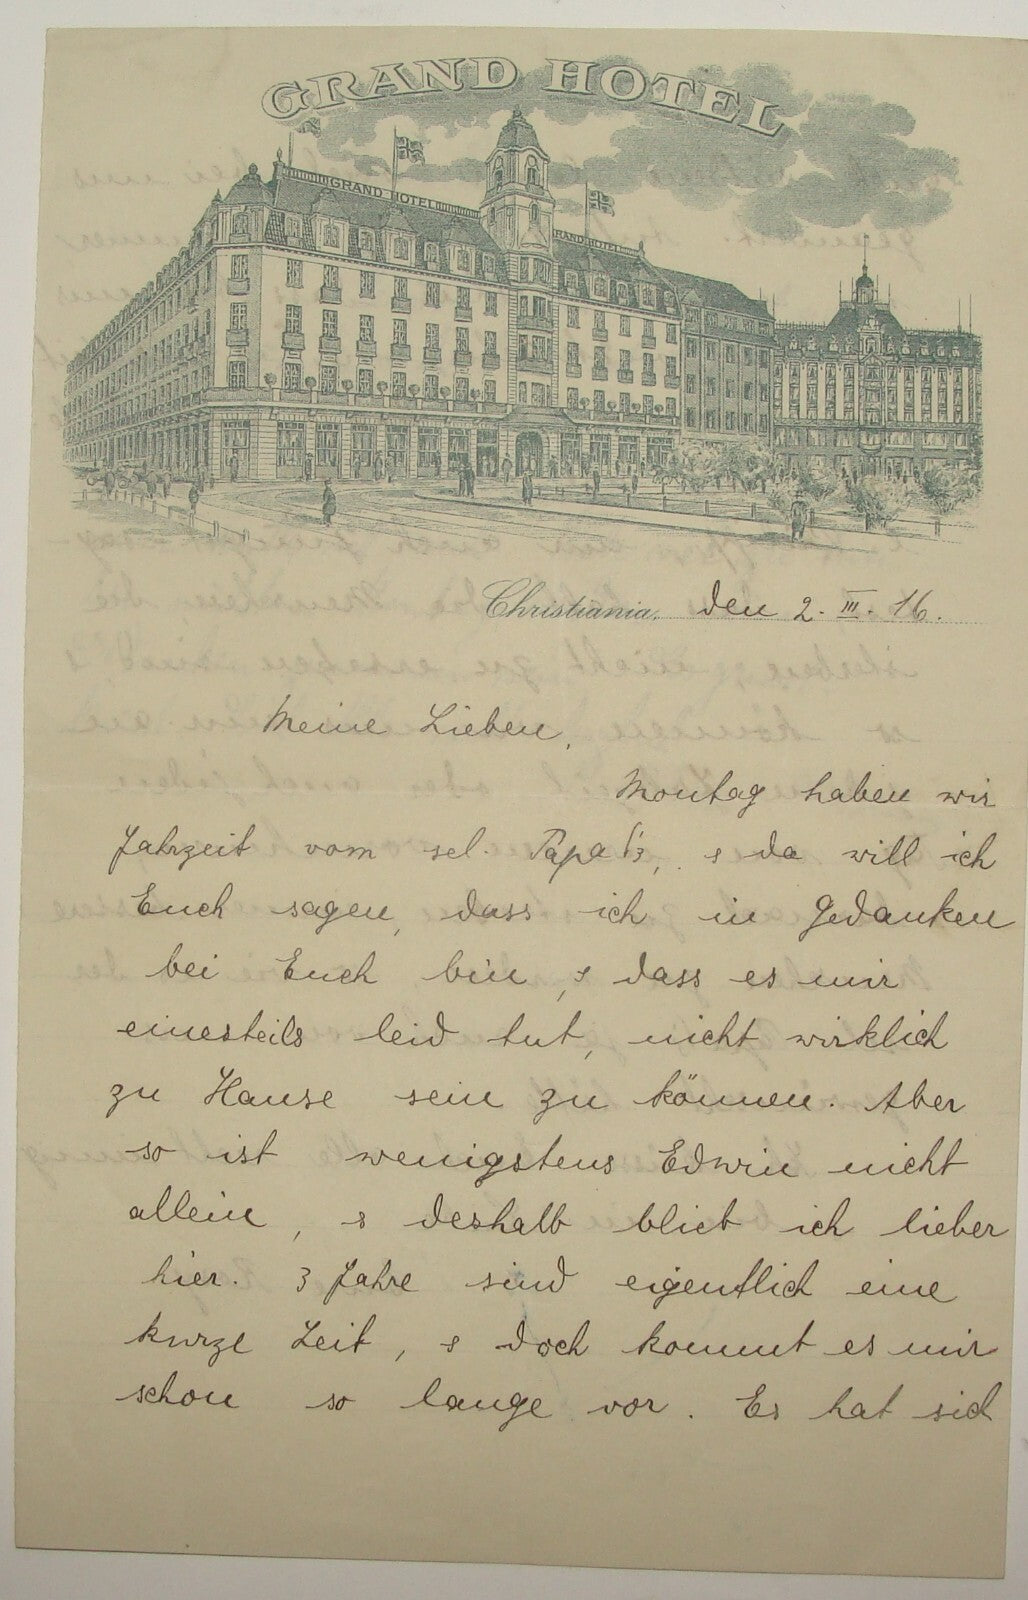 GRAND HOTEL
GRAND HOTEL
GRAND HOTEL
Christiania, den 2. III. 16.
Meine Lieben,
Montag haben wir
Jahrzeit vom sel. Papa, & da will ich
Euch sagen, dass ich in Gedanken
bei Euch bin, & dass es mir
einesteils leid tut, nicht wirklich
zu Hause sein zu können. Aber
so ist wenigstens Edwin nicht
allein, & deshalb bliet ich lieber
hier. 3 Jahre sind eigentlich eine
kurze Zeit, & doch kommt es mir
schon so lange vor. Es hat sich